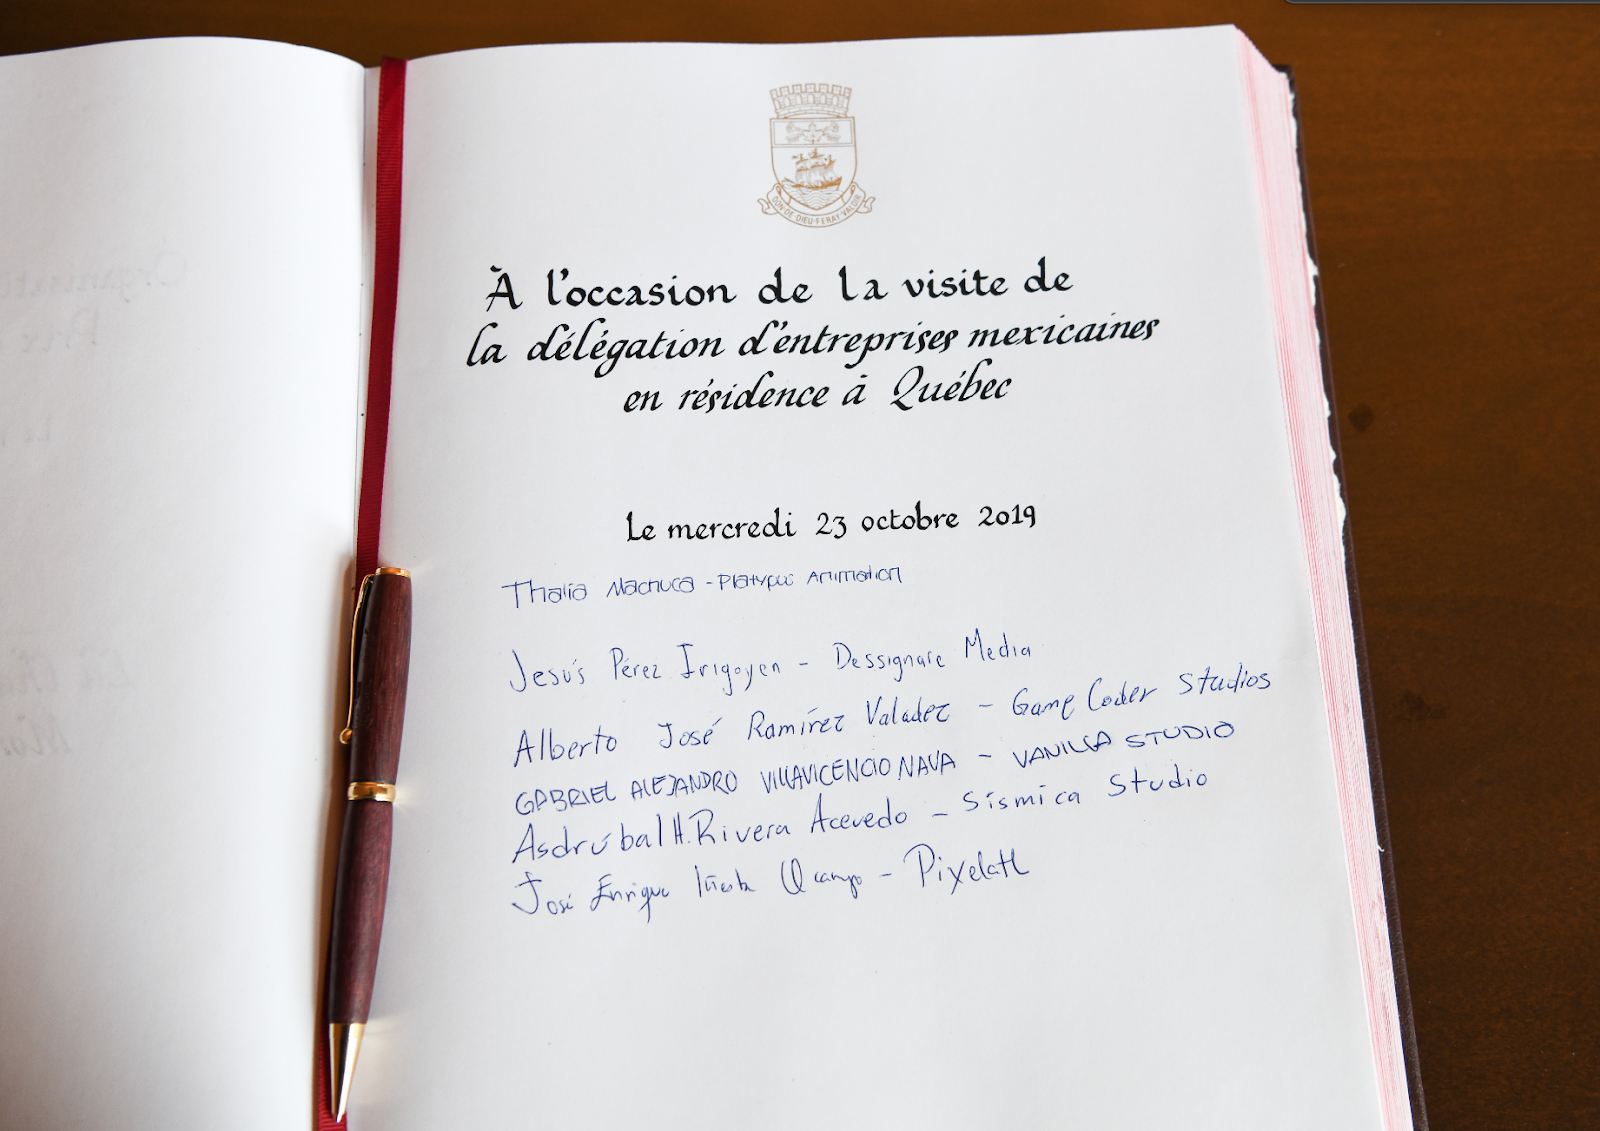 DON·DE·DIEU·FERAY·VALOIR
À l'occasion de la visite de
la délégation d'entreprises mexicaines
en résidence à Québec
Le mercredi 23 octobre 2019
Thalía Machuca - Platypus Animation
Jesús Pérez Irigoyen - Dessignare Media
Alberto José Ramírez Valadez - Game Coder Studios
GABRIEL ALEJANDRO VILLAVICENCIO NAVA - VANILLA STUDIO
Asdrúbal H. Rivera Acevedo - Sísmica Studio
José Enrique Ocampo - Pixelatl